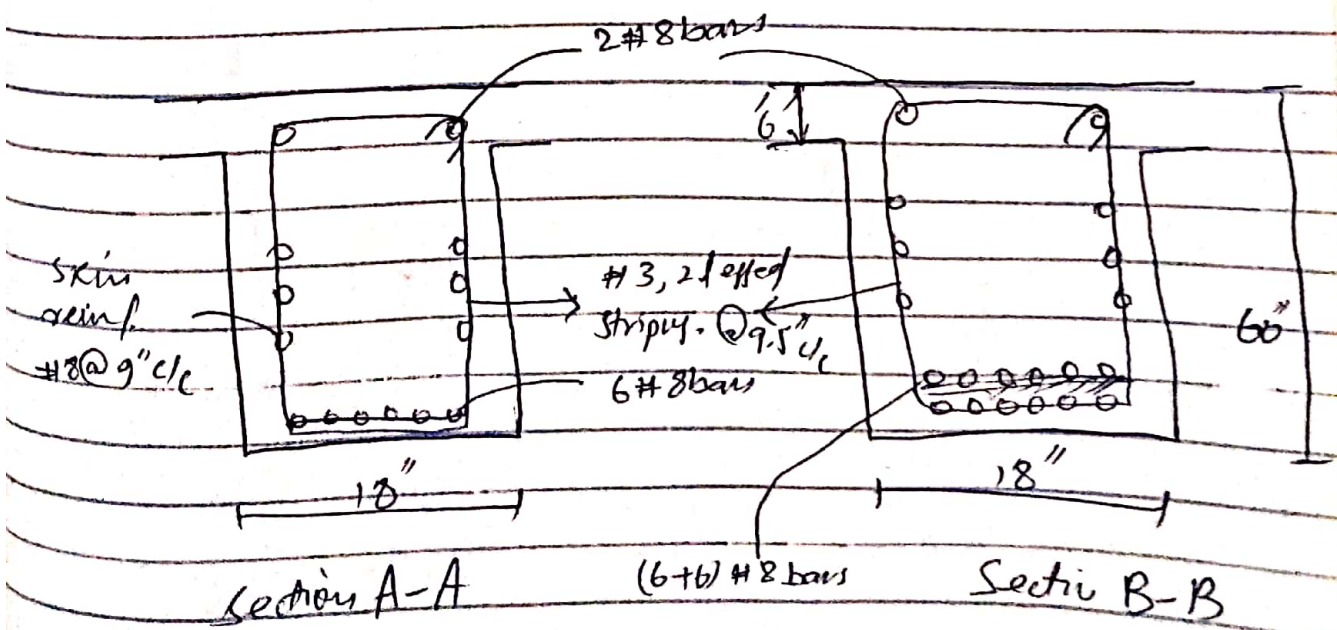 2#8 bars
6"
skin
reinf.
#8@9" c/c
#3, 2 legged
@9.5" c/c
6#8 bars
60"
18"
18"
(6+6) #8 bars
Section A-A
Sectio B-B